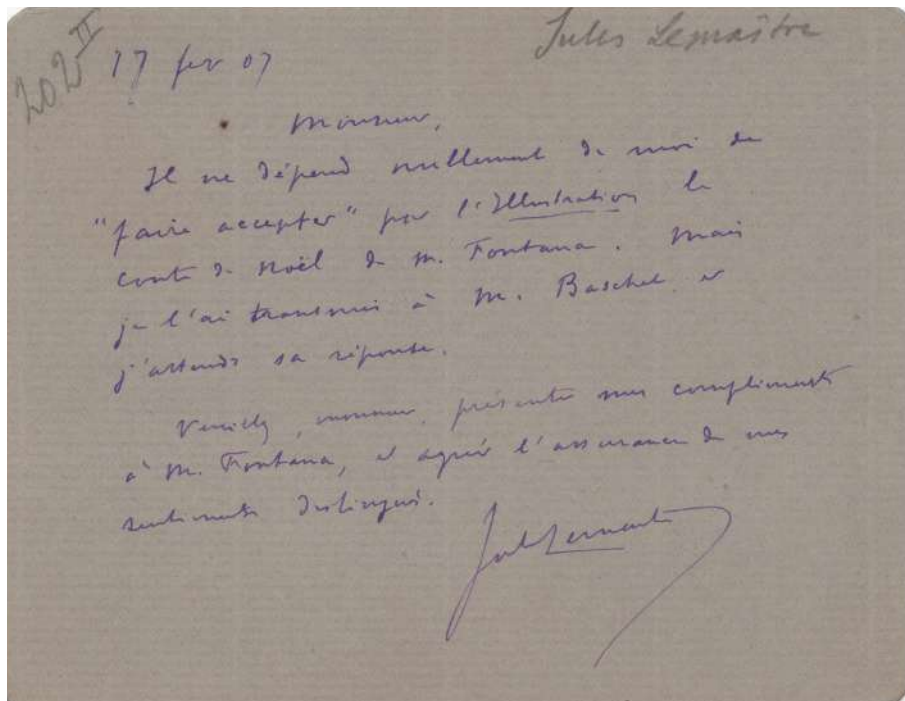 202 II
Jules Lemaître
17 fev 07
Monsieur,
Il ne dépend nullement de moi de
"faire accepter" par l'Illustration le
conte de Noël de M. Fontana. Mais
je l'ai transmis à M. Baschet et
j'attends sa réponse.
Veuillez, monsieur, présenter mes compliments
à M. Fontana, et agréer l'assurance de mes
sentiments distingués.
Jules Lemaitre